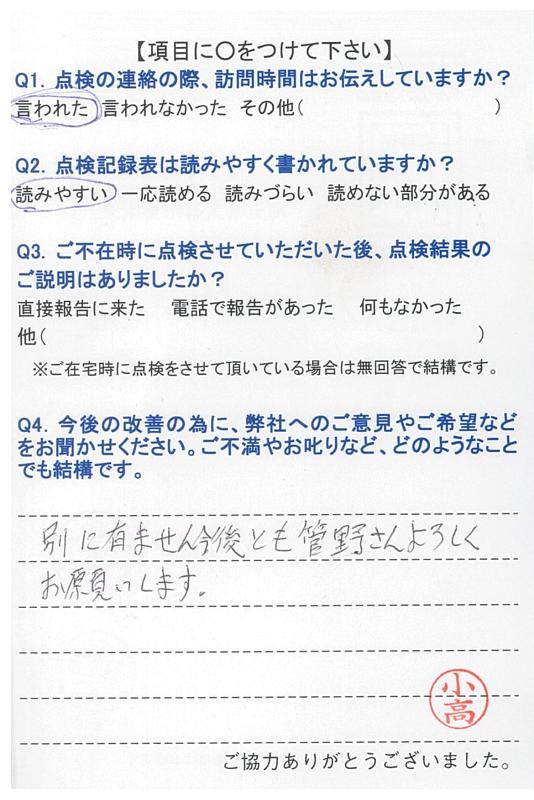 【項目に〇をつけて下さい】
Q1. 点検の連絡の際、訪問時間はお伝えしていますか？
言われた 言われなかった その他( )
Q2. 点検記録表は読みやすく書かれていますか？
読みやすい 一応読める 読みづらい 読めない部分がある
Q3. ご不在時に点検させていただいた後、点検結果の
ご説明はありましたか？
直接報告に来た 電話で報告があった 何もなかった
他( )
※ご在宅時に点検をさせて頂いている場合は無回答で結構です。
Q4. 今後の改善の為に、弊社へのご意見やご希望など
をお聞かせください。ご不満やお叱りなど、どのようなこと
でも結構です。
別に有ません今後とも管野さんよろしく
お願いします。
小高
ご協力ありがとうございました。